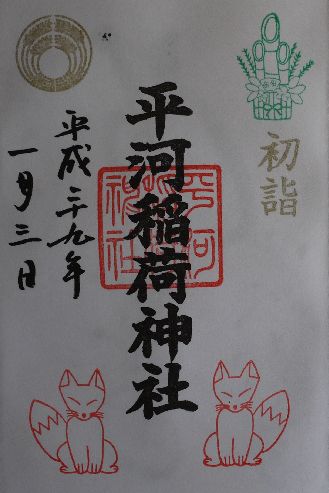 初詣
平河稲荷神社
平河稲荷神社
平成二十九年
一月三日